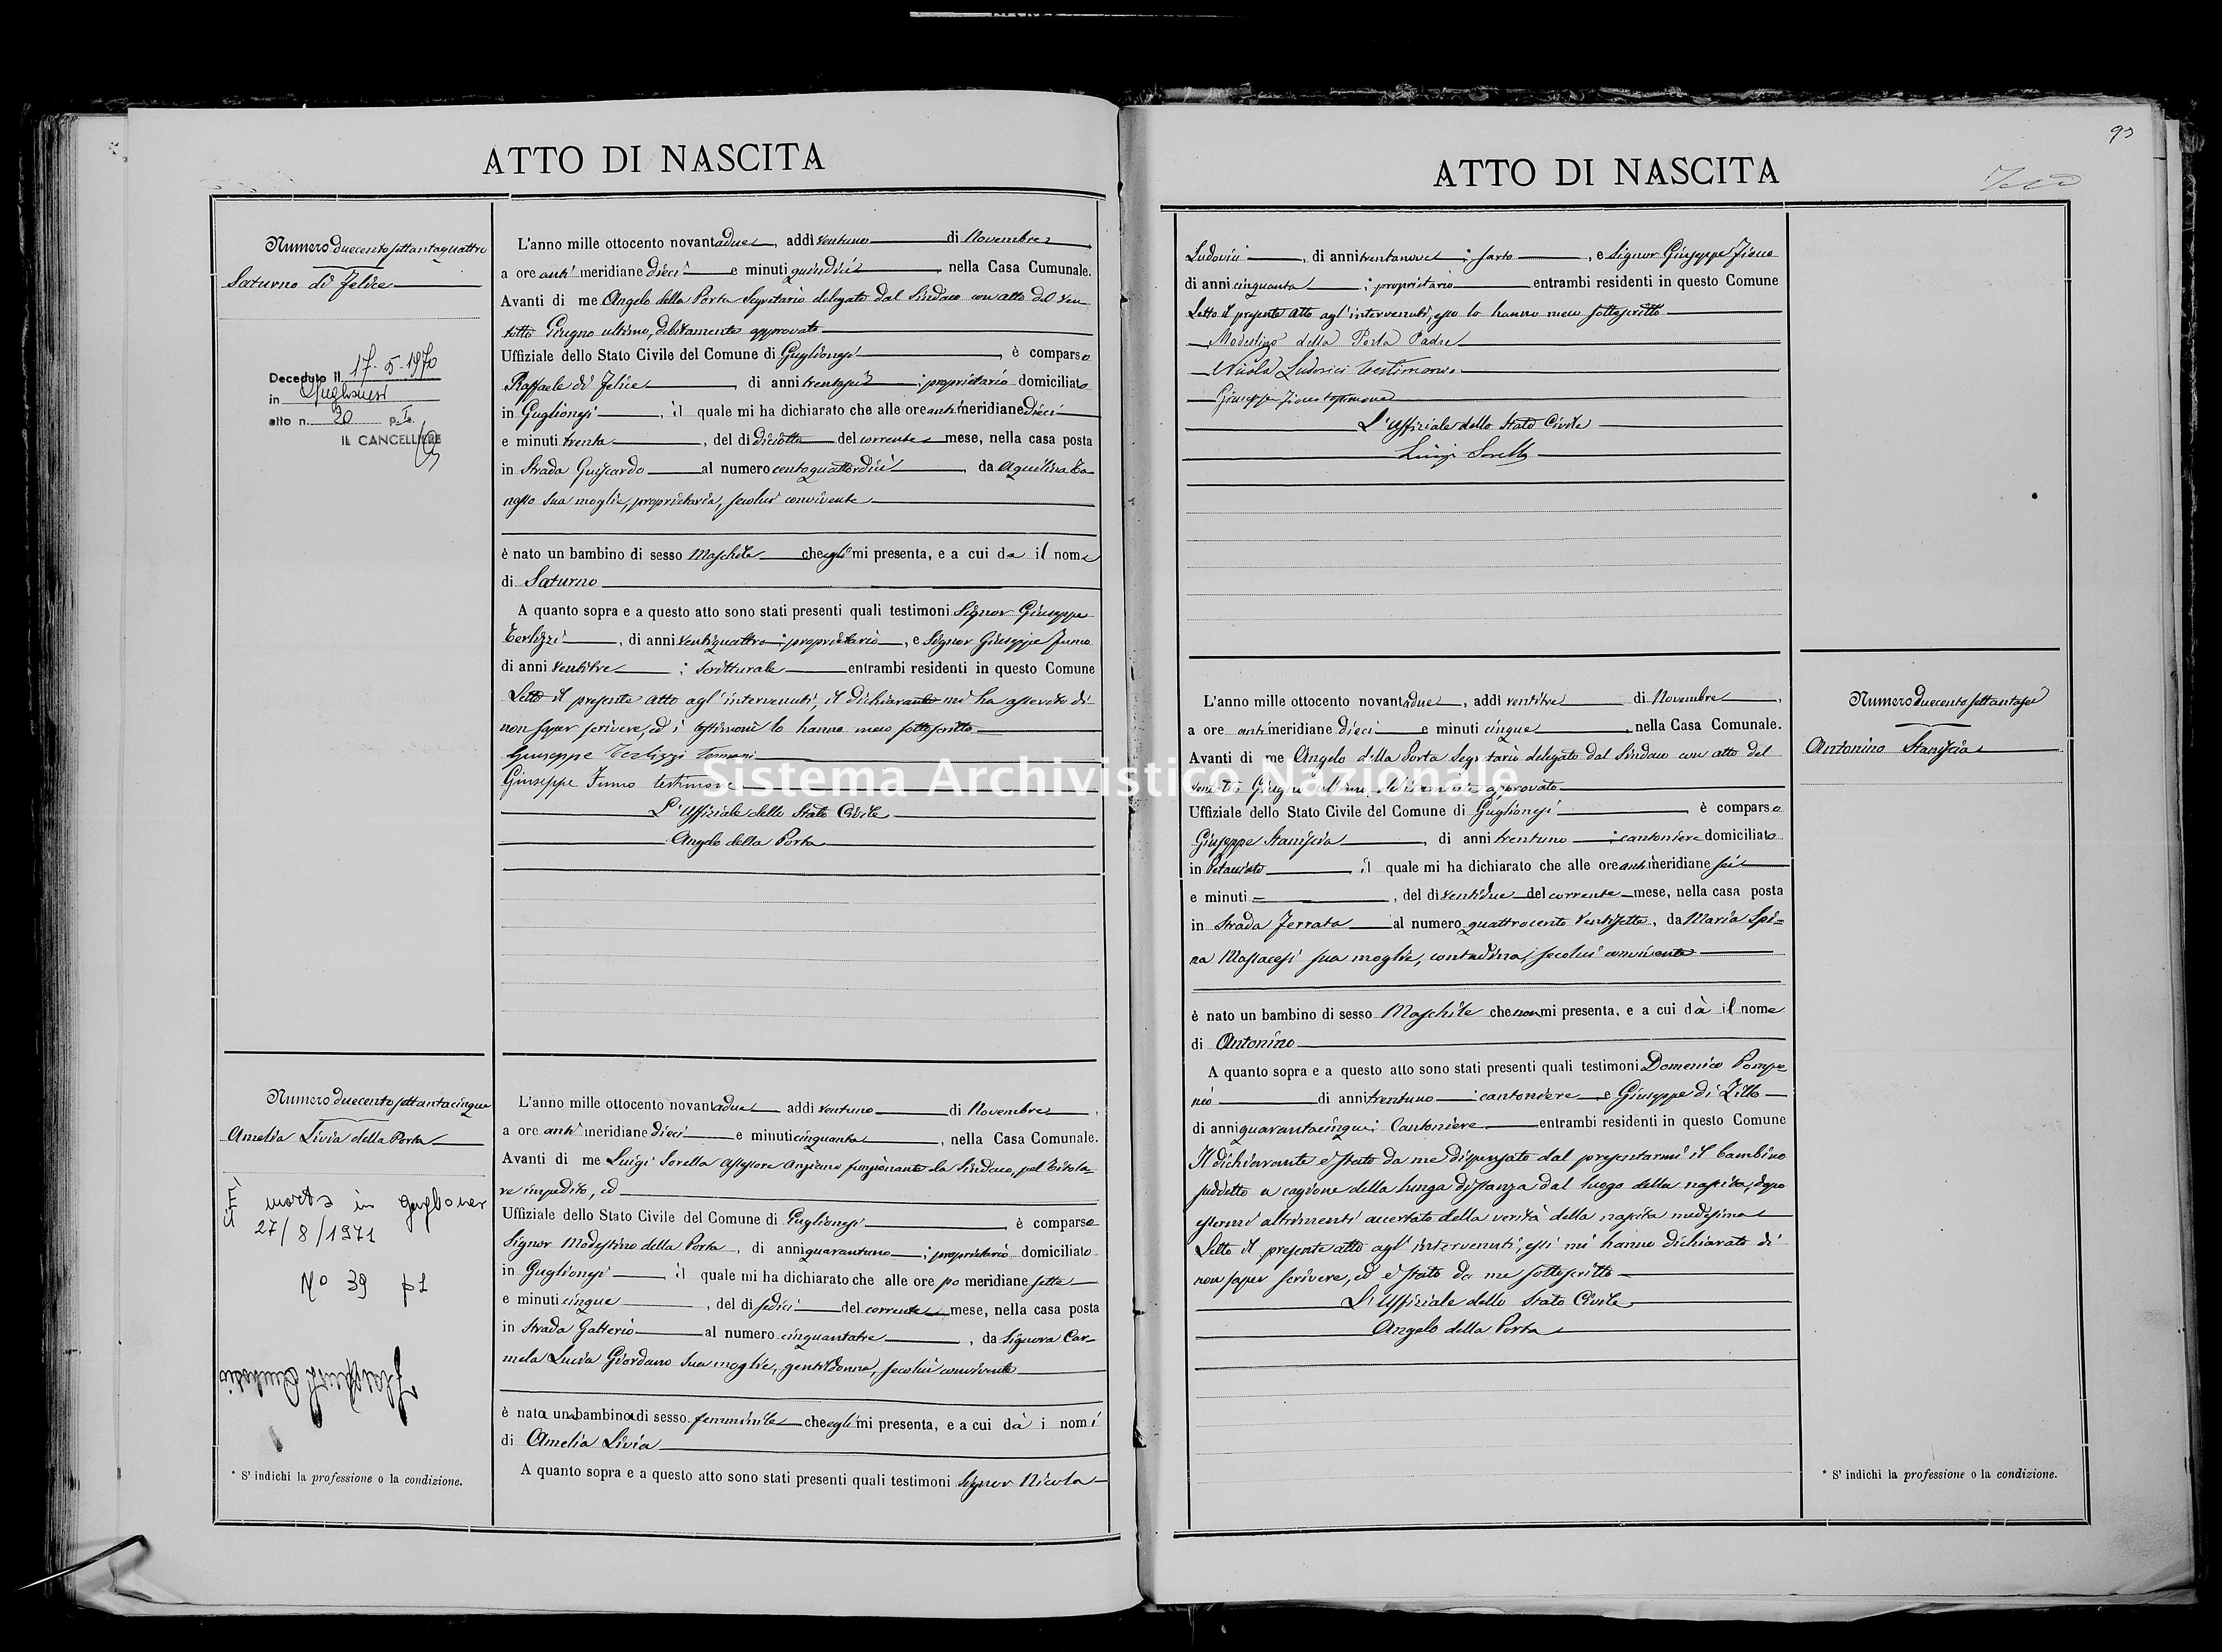 ATTO DI NASCITA
Numero duecento settantaquattro
Saturno di Felice
Deceduto il 17-5-1970
in Guglionesi
atto n. 30 p. I
IL CANCELLIERE
L'anno mille ottocento novantadue, addi ventuno di Novembre,
a ore anti meridiane dieci e minuti quindici, nella Casa Cumunale.
Avanti di me Angelo della Porta Segretario delegato dal Sindaco con atto del ven
totto Giugno ultimo, debitamente approvato
Uffiziale dello Stato Civile del Comune di Guglionesi, è comparso
Raffaele di Felice, di anni trentasei; proprietario domiciliato
in Guglionesi, il quale mi ha dichiarato che alle ore anti meridiane dieci
e minuti trenta, del dì diciotto del corrente mese, nella casa posta
in Strada Guiscardo al numero centoquattordici, da Aquilina Ta
nasso sua moglie, proprietaria, secolui convivente
è nato un bambino di sesso Maschile che egli mi presenta, e a cui da il nome
di Saturno
A quanto sopra e a questo atto sono stati presenti quali testimoni Signor Giuseppe
Terlizzi, di anni ventiquattro; proprietario, e Signor Giuseppe Iumo
di anni ventitre; scritturale entrambi residenti in questo Comune
Letto il presente atto agl'intervenuti, il dichiarante mi ha asserito di
non saper scrivere, ed i testimoni lo hanno meco sottoscritto
Giuseppe Terlizzi
Giuseppe Iumo testimone
L'Uffiziale dello Stato Civile
Angelo della Porta
Numero duecento settantacinque
Amelia Livia della Porta
È morta in Guglionesi
il 27/8/1971
No 39 p I
* S'indichi la professione o la condizione.
L'anno mille ottocento novantadue addi ventuno di Novembre,
a ore anti meridiane dieci e minuti cinquanta, nella Casa Comunale.
Avanti di me Luigi Sorella Assessore Anziano funzionante da Sindaco, pel Titola
re impedito, ed
Uffiziale dello Stato Civile del Comune di Guglionesi, è comparso
Signor Modestino della Porta, di anni quarantuno; proprietario domiciliato
in Guglionesi, il quale mi ha dichiarato che alle ore po meridiane sette
e minuti cinque, del dì sedici del corrente mese, nella casa posta
in Strada Galterio al numero cinquantatre, da Signora Car-
mela Lucia Giordano sua moglie, gentildonna, secolui convivente
è nata una bambina di sesso femminile che egli mi presenta, e a cui dà i nomi
di Amelia Livia
A quanto sopra e a questo atto sono stati presenti quali testimoni Signor Nicola
ATTO DI NASCITA
93
Ludovici, di anni trentanove; sarto, e Signor Giuseppe
di anni cinquanta; proprietario entrambi residenti in questo Comune
Letto il presente atto agl'intervenuti, essi lo hanno meco sottoscritto
Modestino della Porta Padre
Nicola Ludovici testimonio
Giuseppe testimone
L'Uffiziale dello Stato Civile
Luigi Sorella
L'anno mille ottocento novantadue, addi ventitre di Novembre,
a ore anti meridiane dieci e minuti cinque, nella Casa Comunale.
Avanti di me Angelo della Porta Segretario delegato dal Sindaco con atto del
ventotto Giugno ultimo, debitamente approvato
Uffiziale dello Stato Civile del Comune di Guglionesi è comparso
Giuseppe Staniscia, di anni trentuno; cantoniere domiciliato
in Petacciato, il quale mi ha dichiarato che alle ore anti meridiane sei
e minuti =, del dì ventidue del corrente mese, nella casa posta
in Strada Ferrata al numero quattrocento ventisette, da Maria Spi=
na Mastacesi sua moglie, contadina, secolui convivente
è nato un bambino di sesso Maschile che non mi presenta, e a cui dà il nome
di Antonino
A quanto sopra e a questo atto sono stati presenti quali testimoni Domenico Pompo
nio di anni trentuno; cantoniere e Giuseppe di Zillo
di anni quarantacinque; Cantoniere entrambi residenti in questo Comune
Il dichiarante è stato da me dispensato dal presentarmi il bambino
suddetto a cagione della lunga distanza dal luogo della nascita, dopo
essermi altrimenti accertato della verità della nascita medesima
Letto il presente atto agl'intervenuti, essi mi hanno dichiarato di
non saper scrivere, ed è stato da me sottoscritto
L'Uffiziale dello Stato Civile
Angelo della Porta
Numero duecento settantasei
Antonino Staniscia
* S'indichi la professione o la condizione.
Sistema Archivistico Nazionale